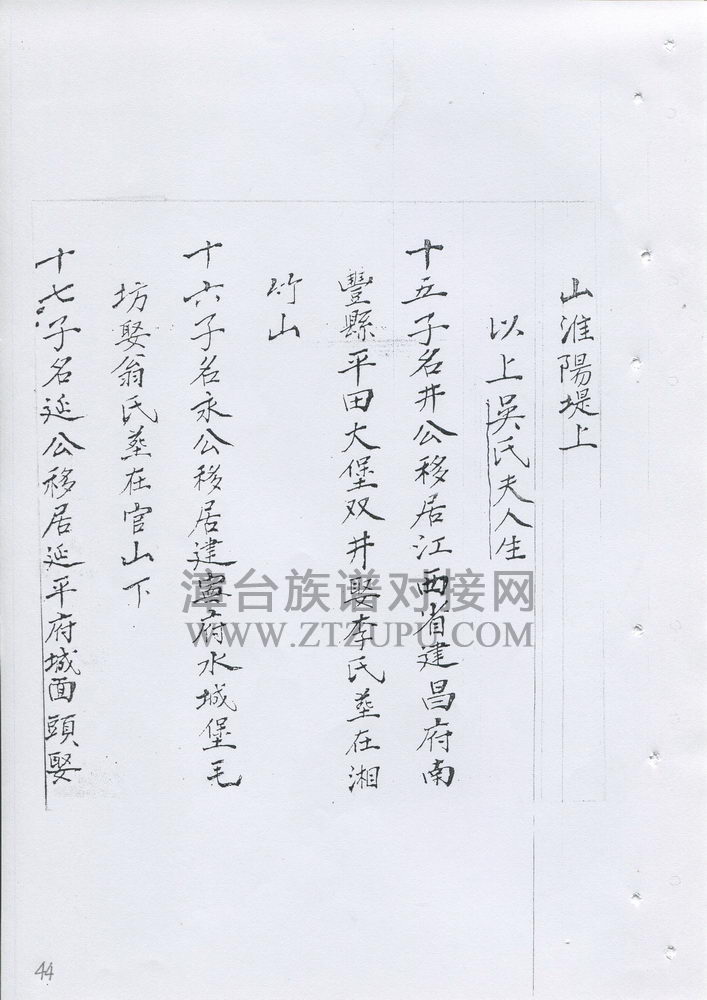 山淮陽堤上
以上吳氏夫人生
十五子名井公移居江西省建昌府南
豐縣平田大堡双井娶李氏墓在湘
竹山
十六子名永公移居建寧府水城堡毛
坊娶翁氏墓在官山下
十七子名延公移居延平府城面頭娶
漳台族谱对接网
WWW.ZTZUPU.COM
44